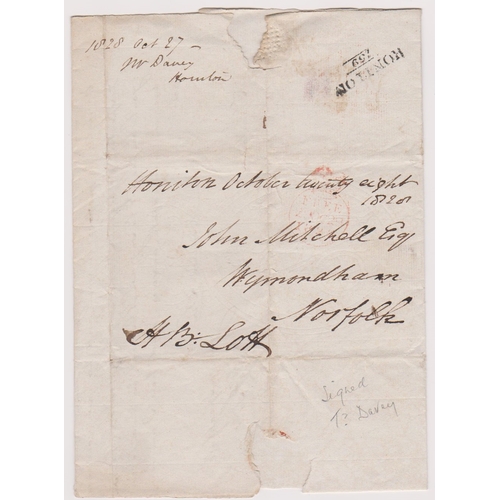 1828 Oct 27 -
Mr Davey
Honiton
HONITON
159
Honiton October twenty eight
1828
FREE
John Mitchell Esq
Wymondham
Norfolk
H B: Lott
Signed
Ts Davey